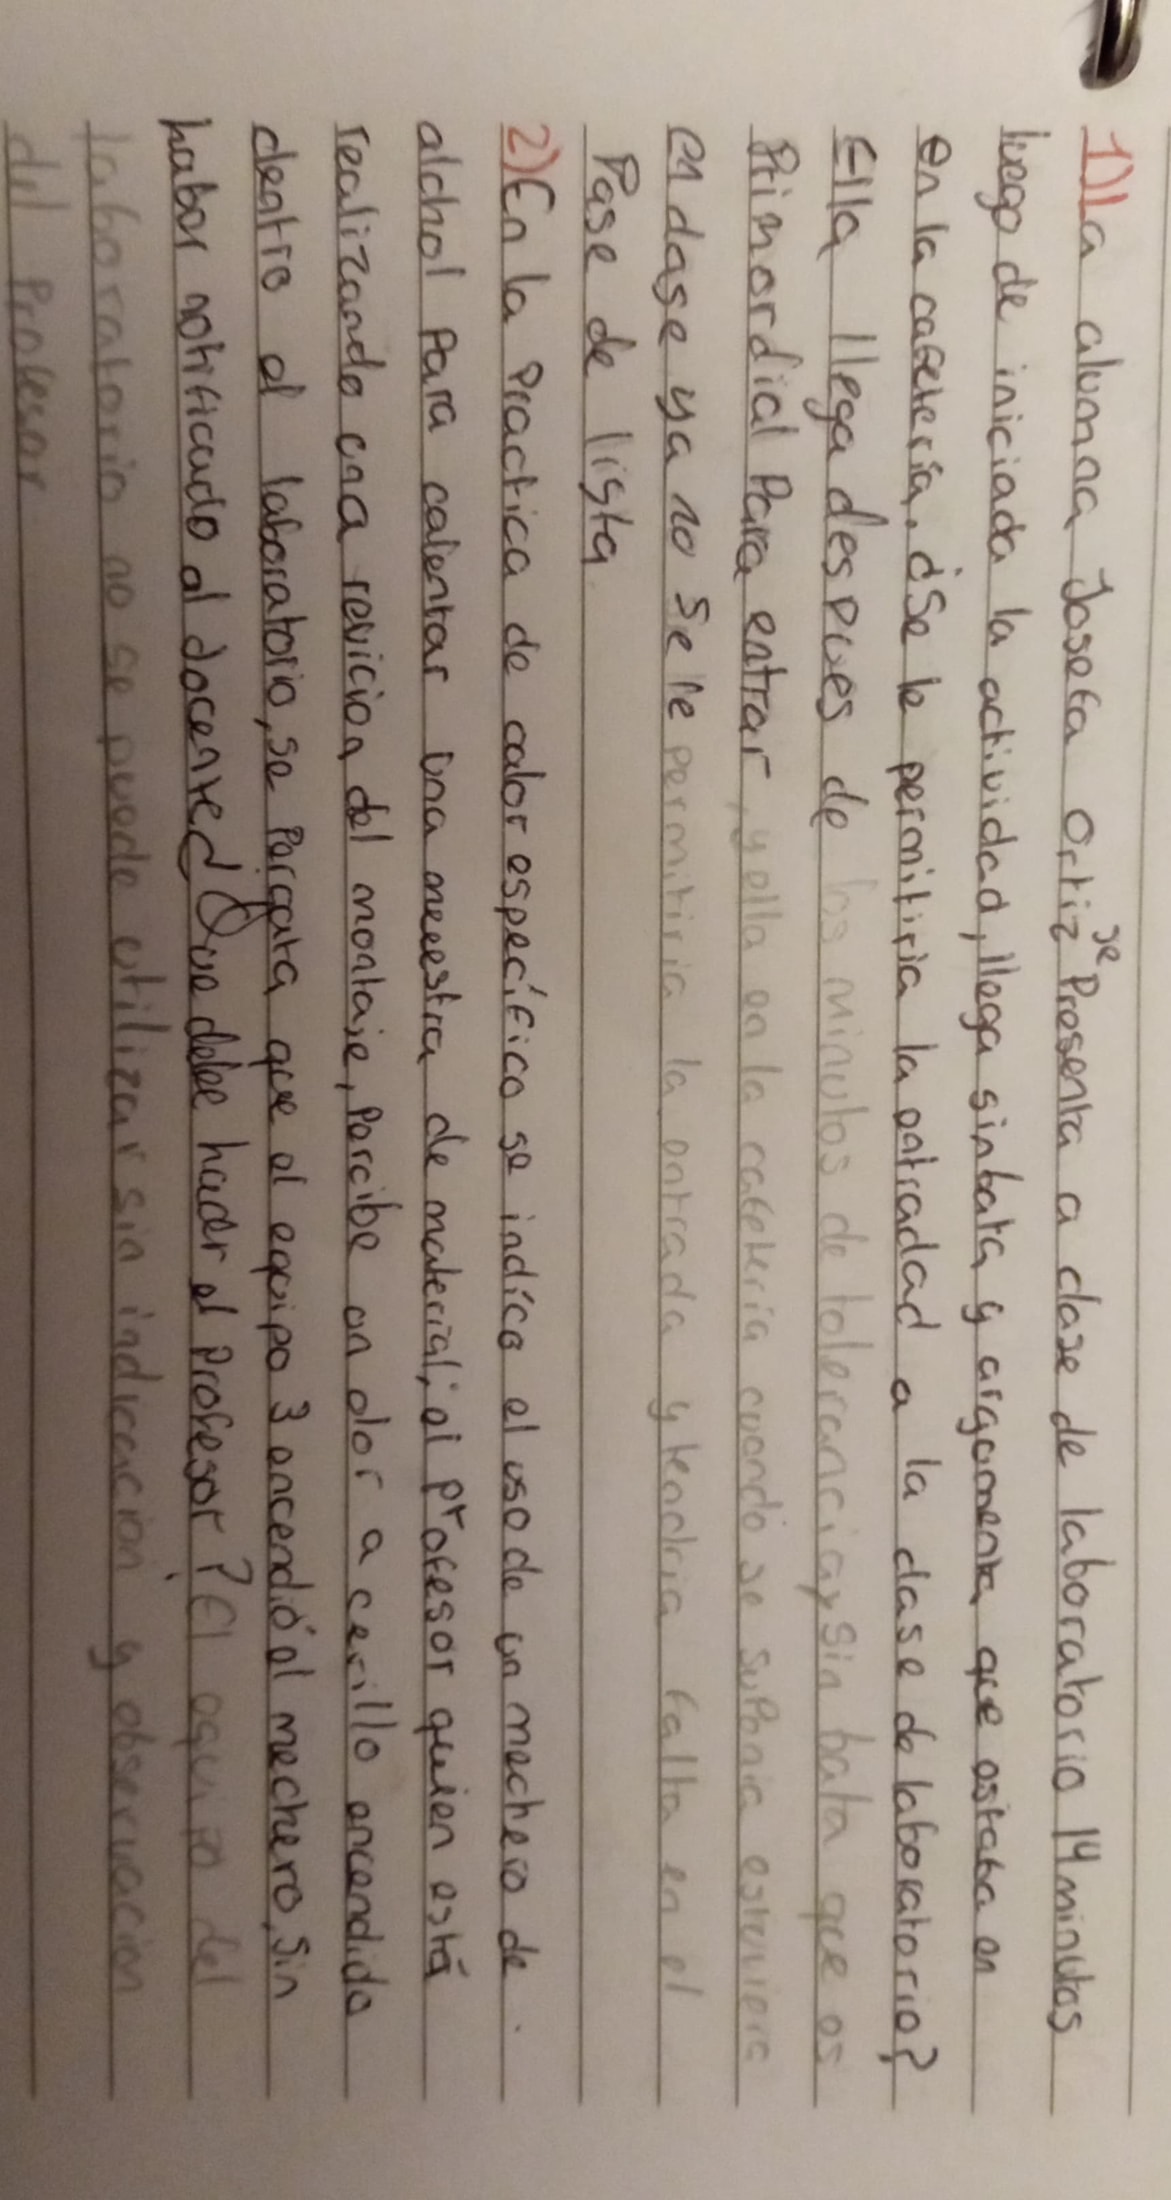 1) La alumna Josefa Ortiz se Presenta a clase de laboratorio 14 minutos
luego de iniciada la actividad, llega sin bata y argumenta que estaba en
en la cafetería. ¿Se le permitiria la entradad a la clase de laboratorio?
Ella llega despues de los minutos de tolerancia y sin bata que es
Primordial Para entrar, y ella en la cafeteria cuando se suponia estuviera
en clase ya no se le permitiria la entrada y tendria falta en el
Pase de lista
2) En la Practica de calor específico se indíco el uso de un mechero de
alchol Para calentar una meestra de material, el profesor quien está
realizando una revicion del montaje, Parcibe un olor a cerillo encendido
deatro el laboratorio, se Parcata que el equipo 3 encendió el mechero, sin
haber notificado al docente ¿Que debe hacer el Profesor? El equipo del
laboratorio no se puede utilizar sin indicacion y observacion
del Profesor